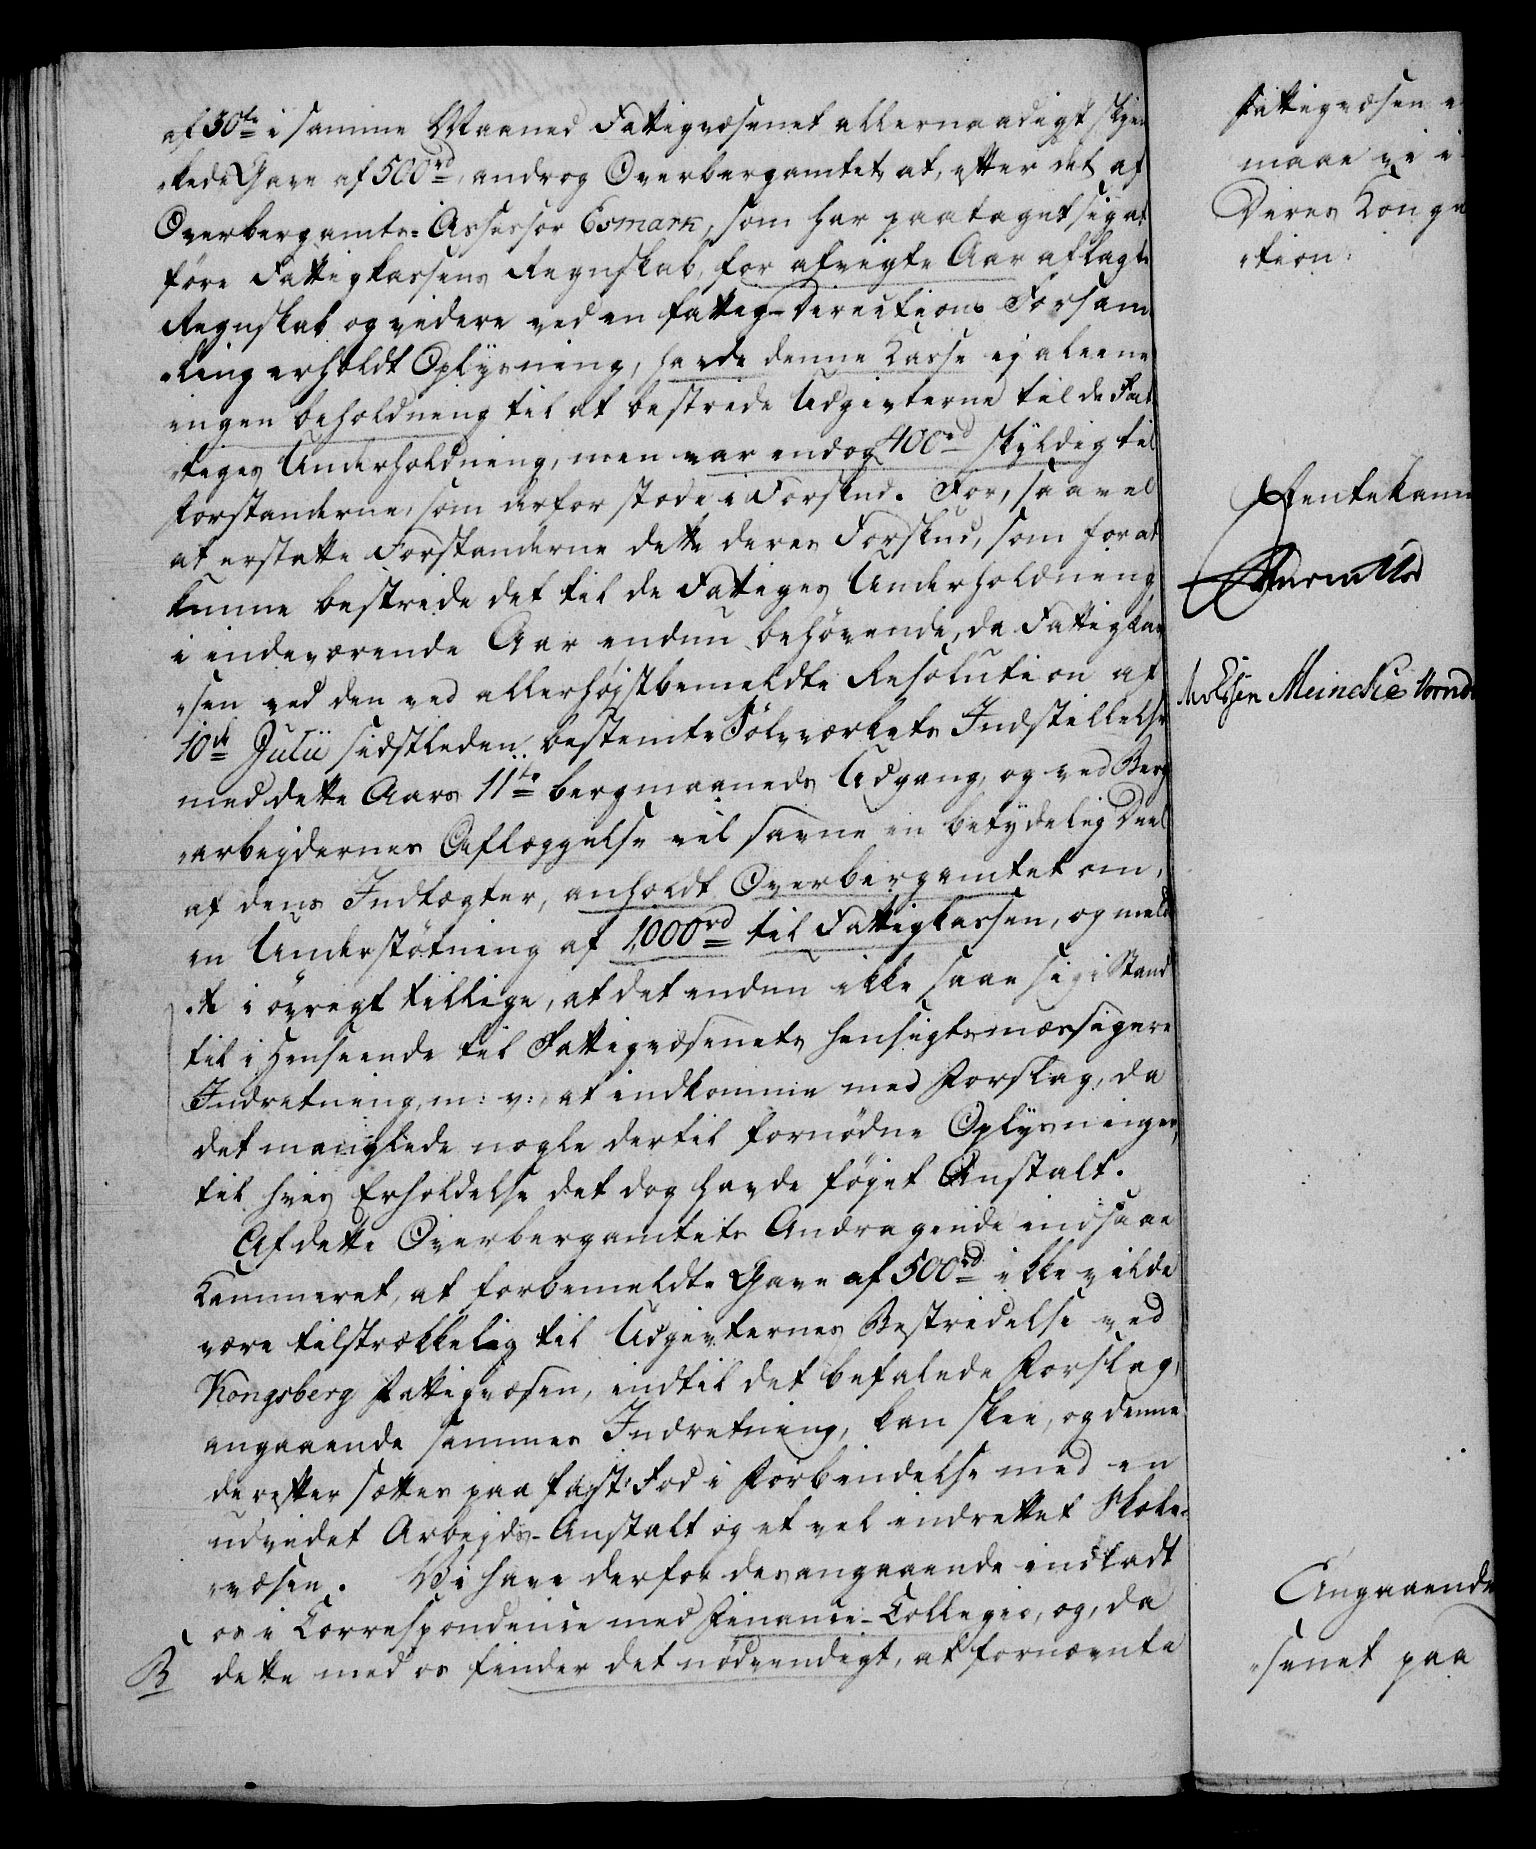 af 30te i samme Maaned Fattigvæsenet allernaadigst skjen
„kede Gave af 500rd, androg Overbergamtet, at, efter det af
Overbergamts-Assessor Esmark, som har paataget sig at
före Fattigkassens Regnskab, for afvigte Aar aflagte
Regnskab og videre ved en fattig-Directions Forsam
„ling erholdt Oplysning, havde denne Kasse ej aleene
ingen beholdning til at bestride Udgivterne til de Fat
„tiges Underholdning, men var endog 400rd skyldig til
forstanderne, som derfor stode i Forskud. For, saavel
at erstatte Forstanderne dette deres Forskud, som for at
kunne bestride det til de Fattiges Underholdning
i indeværende Aar endnu behövende, da Fattigkas
„sen ved den ved allerhöjstbemeldte Resolution af
10de Julii sidstleden bestemte Sölvværkets Indstillelse
med dette Aars 11te bergmaaneds Udgang, og ved Berg
„arbejdernes Aflæggelse vil savne en betydelig Deel
af dens Indtægter, anholdt Overbergamtet om,
en Understötning af 1,000rd til Fattigkassen, og meld
„te i övrigt tillige, at det endnu ikke saae sig i Stand
til i Henseende til Fattigvæsenets hensigtsmæssigere
Indretning, m: v:, at indkomme med Forslag, da
det manglede nogle dertil fornödne Oplysninger,
til hvis Erholdelse det dog havde föjet Anstalt.
Af dette Overbergamtets Andragende indsaae
Kammeret, at forbemeldte Gave af 500rd ikke vilde
være tilstrækkelig til Udgivternes Bestridelse ved
Kongsberg Fattigvæsen, indtil det befalede Forslag,
angaaende sammes Indretning, kan skee, og denne
derefter sættes paa fast Fod i Forbindelse med en
udvidet Arbejds-Anstalt og et vel indrettet Skole-
„væsen. Vi have derfor desangaaende indladt
os i Correspondence med Finance-Collegio, og, da
dette med os finder det nödvendigt, at fornævnte
Fattigvæsen
maae vi i
Deres Konge
„tion:
Rentekam
Meinche
Angaaende
„senet paa